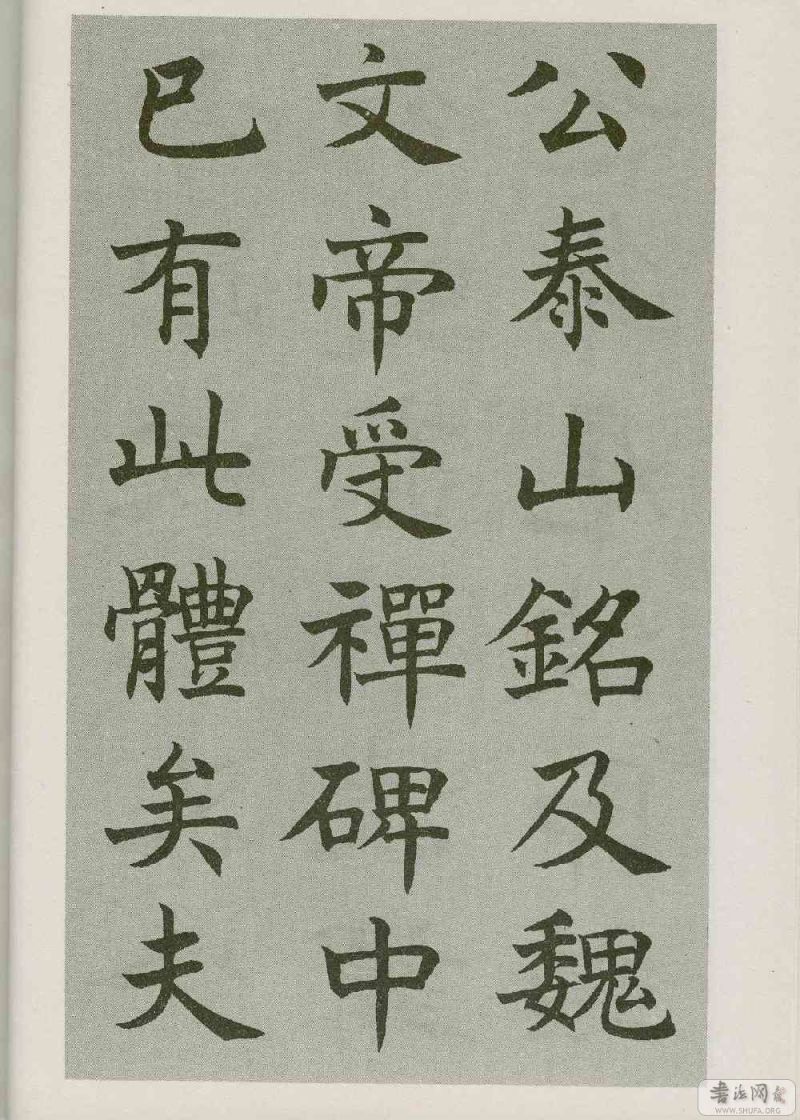 公泰山銘及魏
文帝受禪碑中
已有此體矣夫
书法网
WWW.SHUFA.ORG